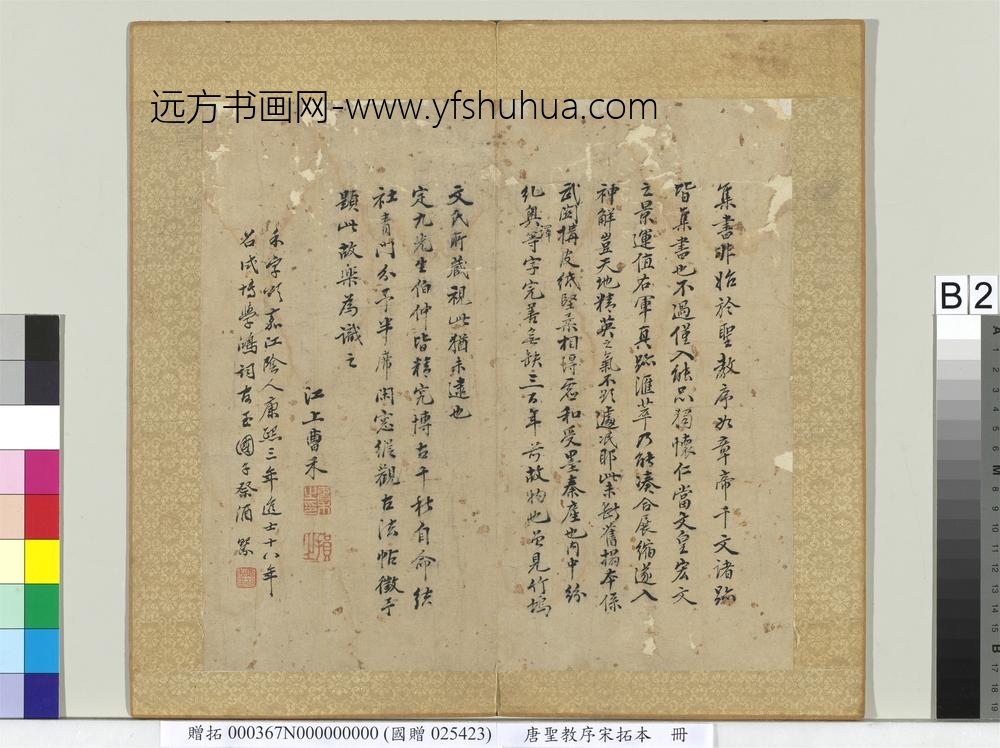 远方书画网-www.yfshuhua.com
集書非始於聖教序如章帝千文諸跡
皆集書也不過僅入能品獨懷仁當文皇宏文
之景運值右軍真跡滙萃乃能湊合展縮遂入
神解豈天地精英之氣不欲遽泯耶此未斷舊搨本係
武岡搆皮紙堅柔相得悉和受墨秦産也内中紛
糺奥等字完善無缺三百年前故物也曾見竹塢
釋
文氏所藏視此猶未逮也
定九先生伯仲皆精究博古千秋自命結
社青門分予半席閑窓縱觀古法帖徵予
題此故樂為識之
江上曹禾
禾字頌嘉江陰人康熙三年進士十八年
召試博學鴻詞官至國子祭酒
B 2
贈拓 000367N000000000 (國贈 025423)
唐聖教序宋拓本 冊